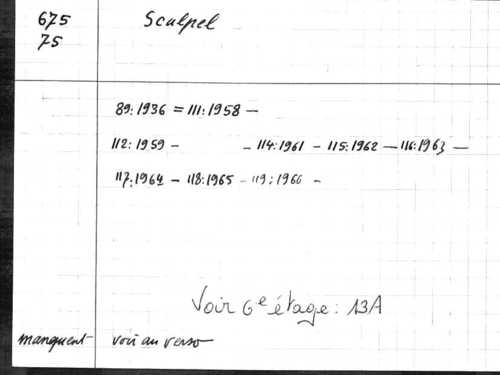 675 Scalpel
75
89:1936 = 111:1958 —
112:1959 - - 114:1961 - 115:1962 — 116:1963 —
117:1964 - 118:1965 - 119:1966 -
Voir 6e étage: 13A
manquent voir au verso